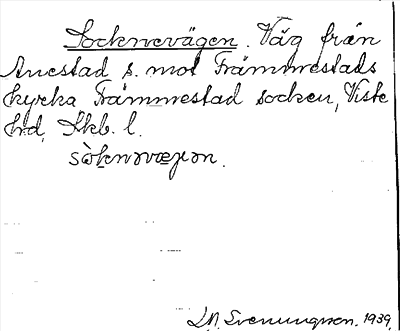 Socknevägen. Väg från
Anestad s. mot Främmestads
kyrka Främmestad socken, Viste
hd, Skb. l.
sòknəvæɡən.
S. A. Svenungsson. 1939.